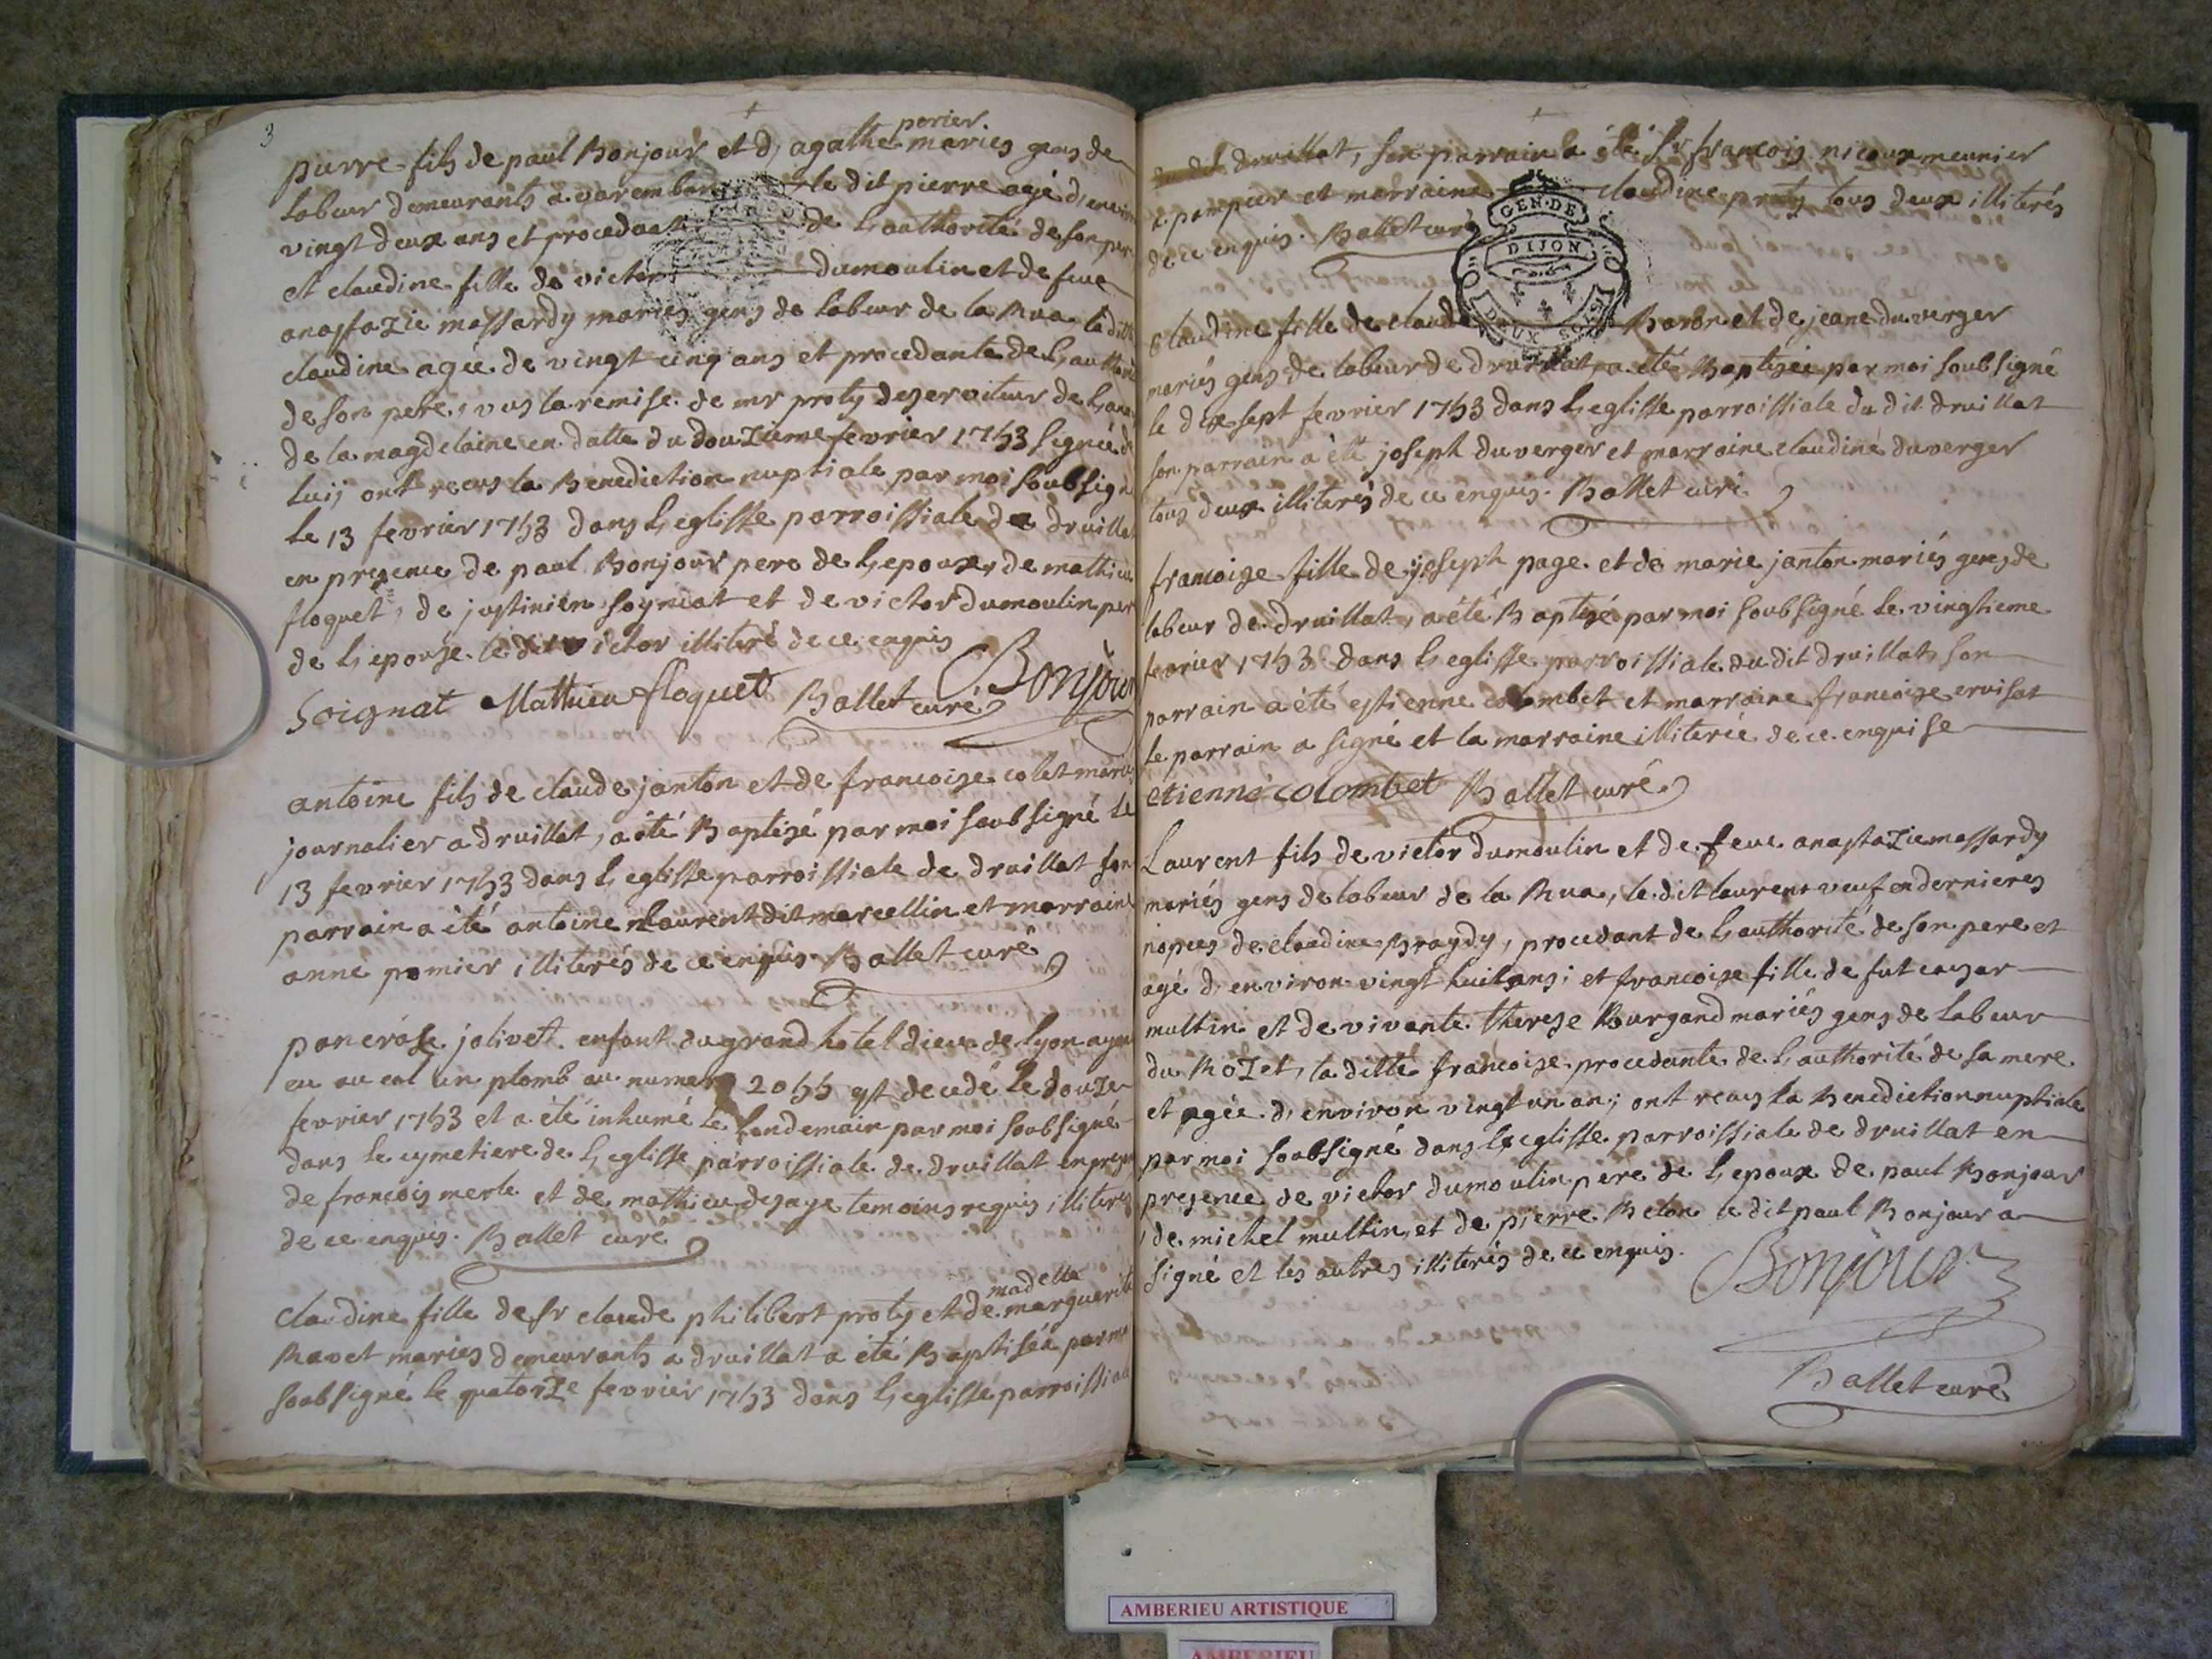 3
pierre fils de paul Bonjour et d'agathe perier mariés gens de
labeur demeurants a varembon le dit pierre agé d'environ
vingt deux ans et procedant de l'authorité de son pere
et claudine fille de victor dumoulin et de feue
anastazie massardy mariés gens de labeur de la Rua, la ditte
claudine agée de vingt cinq ans et procedante de l'authorité
de son pere, vus la remise de mr proty deserviteur de
de la magdelaine en datte du douzieme fevrier 1753 signée de
luij ont recus la Benediction nuptiale par moi soubsigné
le 13 fevrier 1753 dans l'eglisse parroissiale de druillat
en presence de paul Bonjour pere de l'epoux, de mathieu
floquet, de justinien soyniat et de victor dumoulin pere
de l'epouse le dit victor illiteré de ce enquis
Soignat Mathieu floquet Ballet curé Bonjour
antoine fils de claude janton et de francoise colet mariés
journalier a druillat, a été Baptisé par moi soubsigné le
13 fevrier 1753 dans l'eglisse parroissiale de druillat son
parrain a été antoine laurent dit marcellin et marraine
anne pomier illiterés de ce enquis. Ballet curé
pancrase jolivet enfant du grand hotel dieu de lyon ayant
eu au col un plomb au numero 2055 est decedé le douze
fevrier 1753 et a été inhumé le lendemain par moi soubsigné
dans le cymetiere de l'eglisse parroissiale de druillat en presence
de francois merle et de mathieu desaye temoins requis illiterés
de ce enquis. Ballet curé
claudine fille de sr claude philibert proty et de madelle marguerite
Ravet mariés demeurants a druillat a été Baptisée par moi
soubsigné le quatorze fevrier 1753 dans l'eglisse parroissiale
du dit druillat, son parrain a été sr francois nicoux meunier
a pampier et marraine claudine proty tous deux illiterés
de ce enquis. Ballet curé
GEN. DE
DIJON
DEUX SOLS
claudine fille de claude Baron et de jeane duverger
mariés gens de labeur de druillat, a été Baptisée par moi soubsigné
le dix sept fevrier 1753 dans l'eglisse parroissiale du dit druillat
son parrain a été joseph duverger et marraine claudine duverger
tous deux illiterés de ce enquis. Ballet curé
francoise fille de joseph page et de marie janton mariés gens de
labeur de druillat, a été Baptisé par moi soubsigné le vingtieme
fevrier 1753 dans l'eglisse parroissiale du dit druillat, son
parrain a été estienne colombet et marraine francoise
le parrain a signé et la marraine illiterée de ce enquise
etienne colombet Ballet curé
Laurent fils de victor dumoulin et de feue anastazie massardy
mariés gens de labeur de la Rua, le dit laurent veuf en dernieres
nopces de claudine Braydy, procedant de l'authorité de son pere et
agé d'environ vingt huit ans; et francoise fille de fut cesar
multin et de vivante therese Burgand mariés gens de labeur
du Rozet, la ditte francoise procedante de l'authorité de sa mere
et agée d'environ vingt un an; ont recus la Benediction nuptiale
par moi soubsigné dans l'eglisse parroissiale de druillat en
presence de victor dumoulin pere de l'epoux de paul Bonjour
de michel multin, et de pierre Belon le dit paul Bonjour a
signé et les autres illiterés de ce enquis.
Bonjour
Ballet curé
AMBERIEU ARTISTIQUE
AMBERIEU